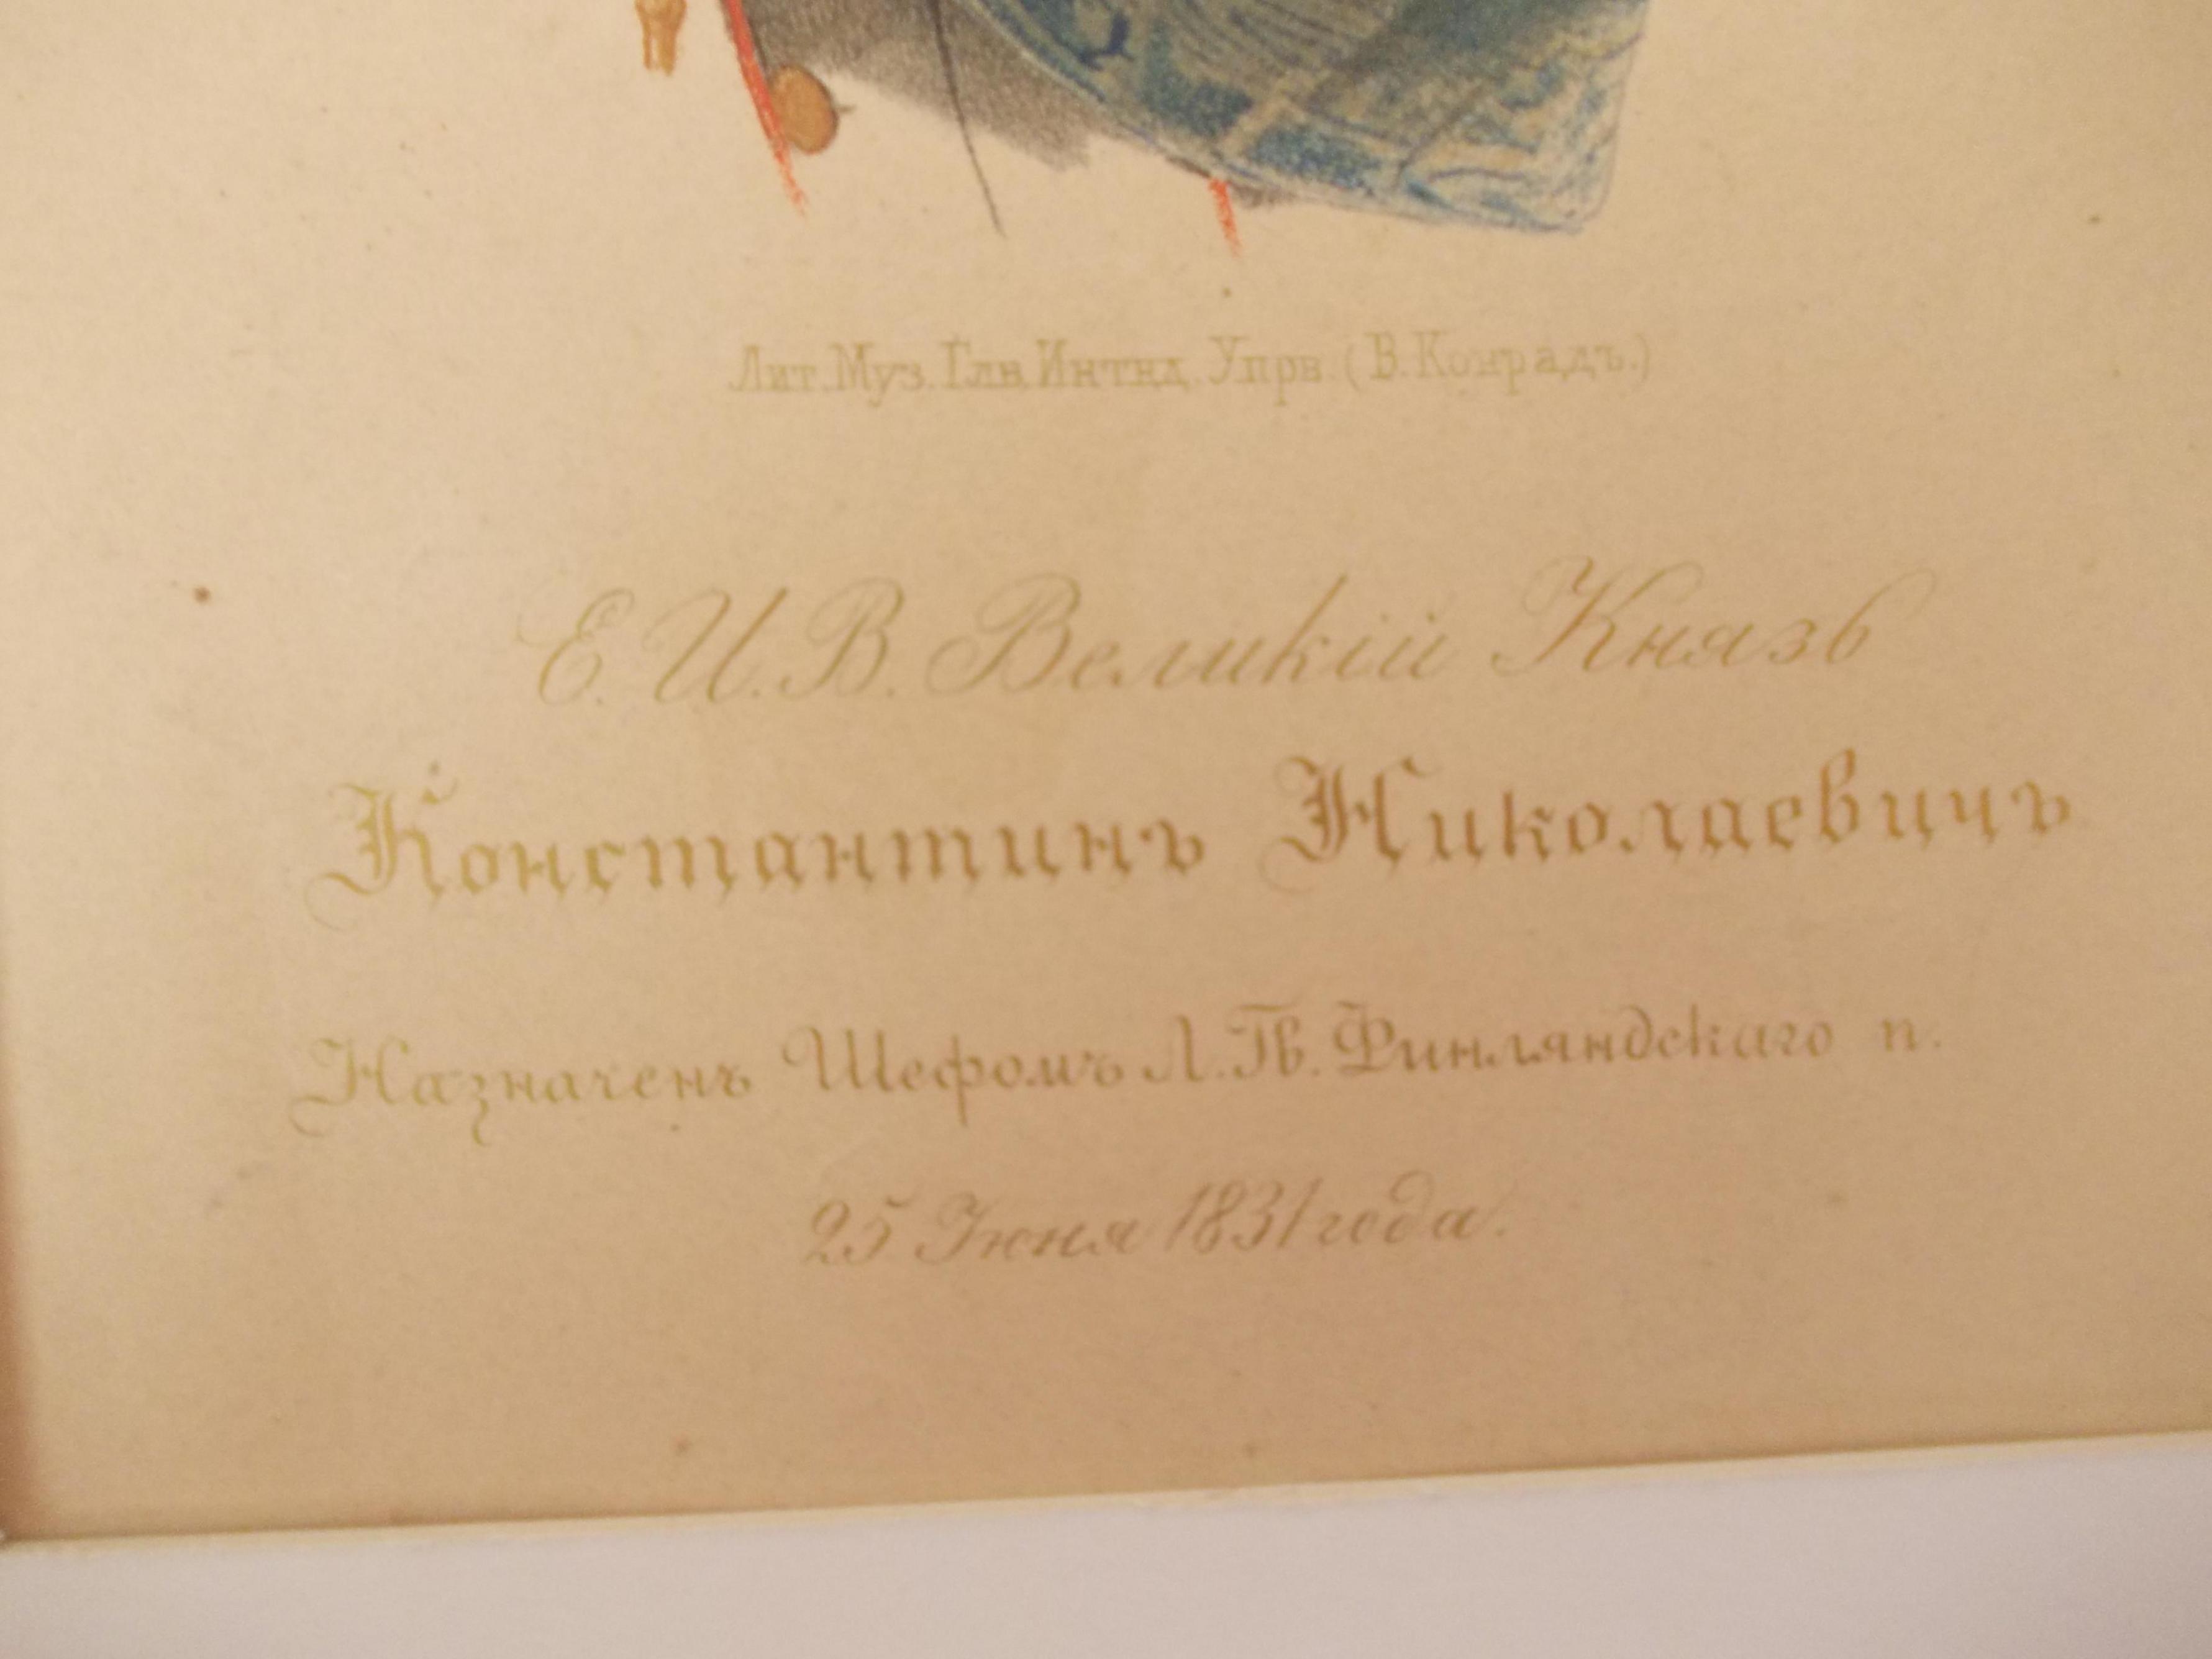 Лит.Муз.Глв.Интнд.Упрв.(В.Конрадъ.)
Е.И.В. Великій Князь
Константинъ Николаевичъ
Назначенъ Шефомъ Л.Гв. Финляндскаго п.
25 Іюня 1831 года.